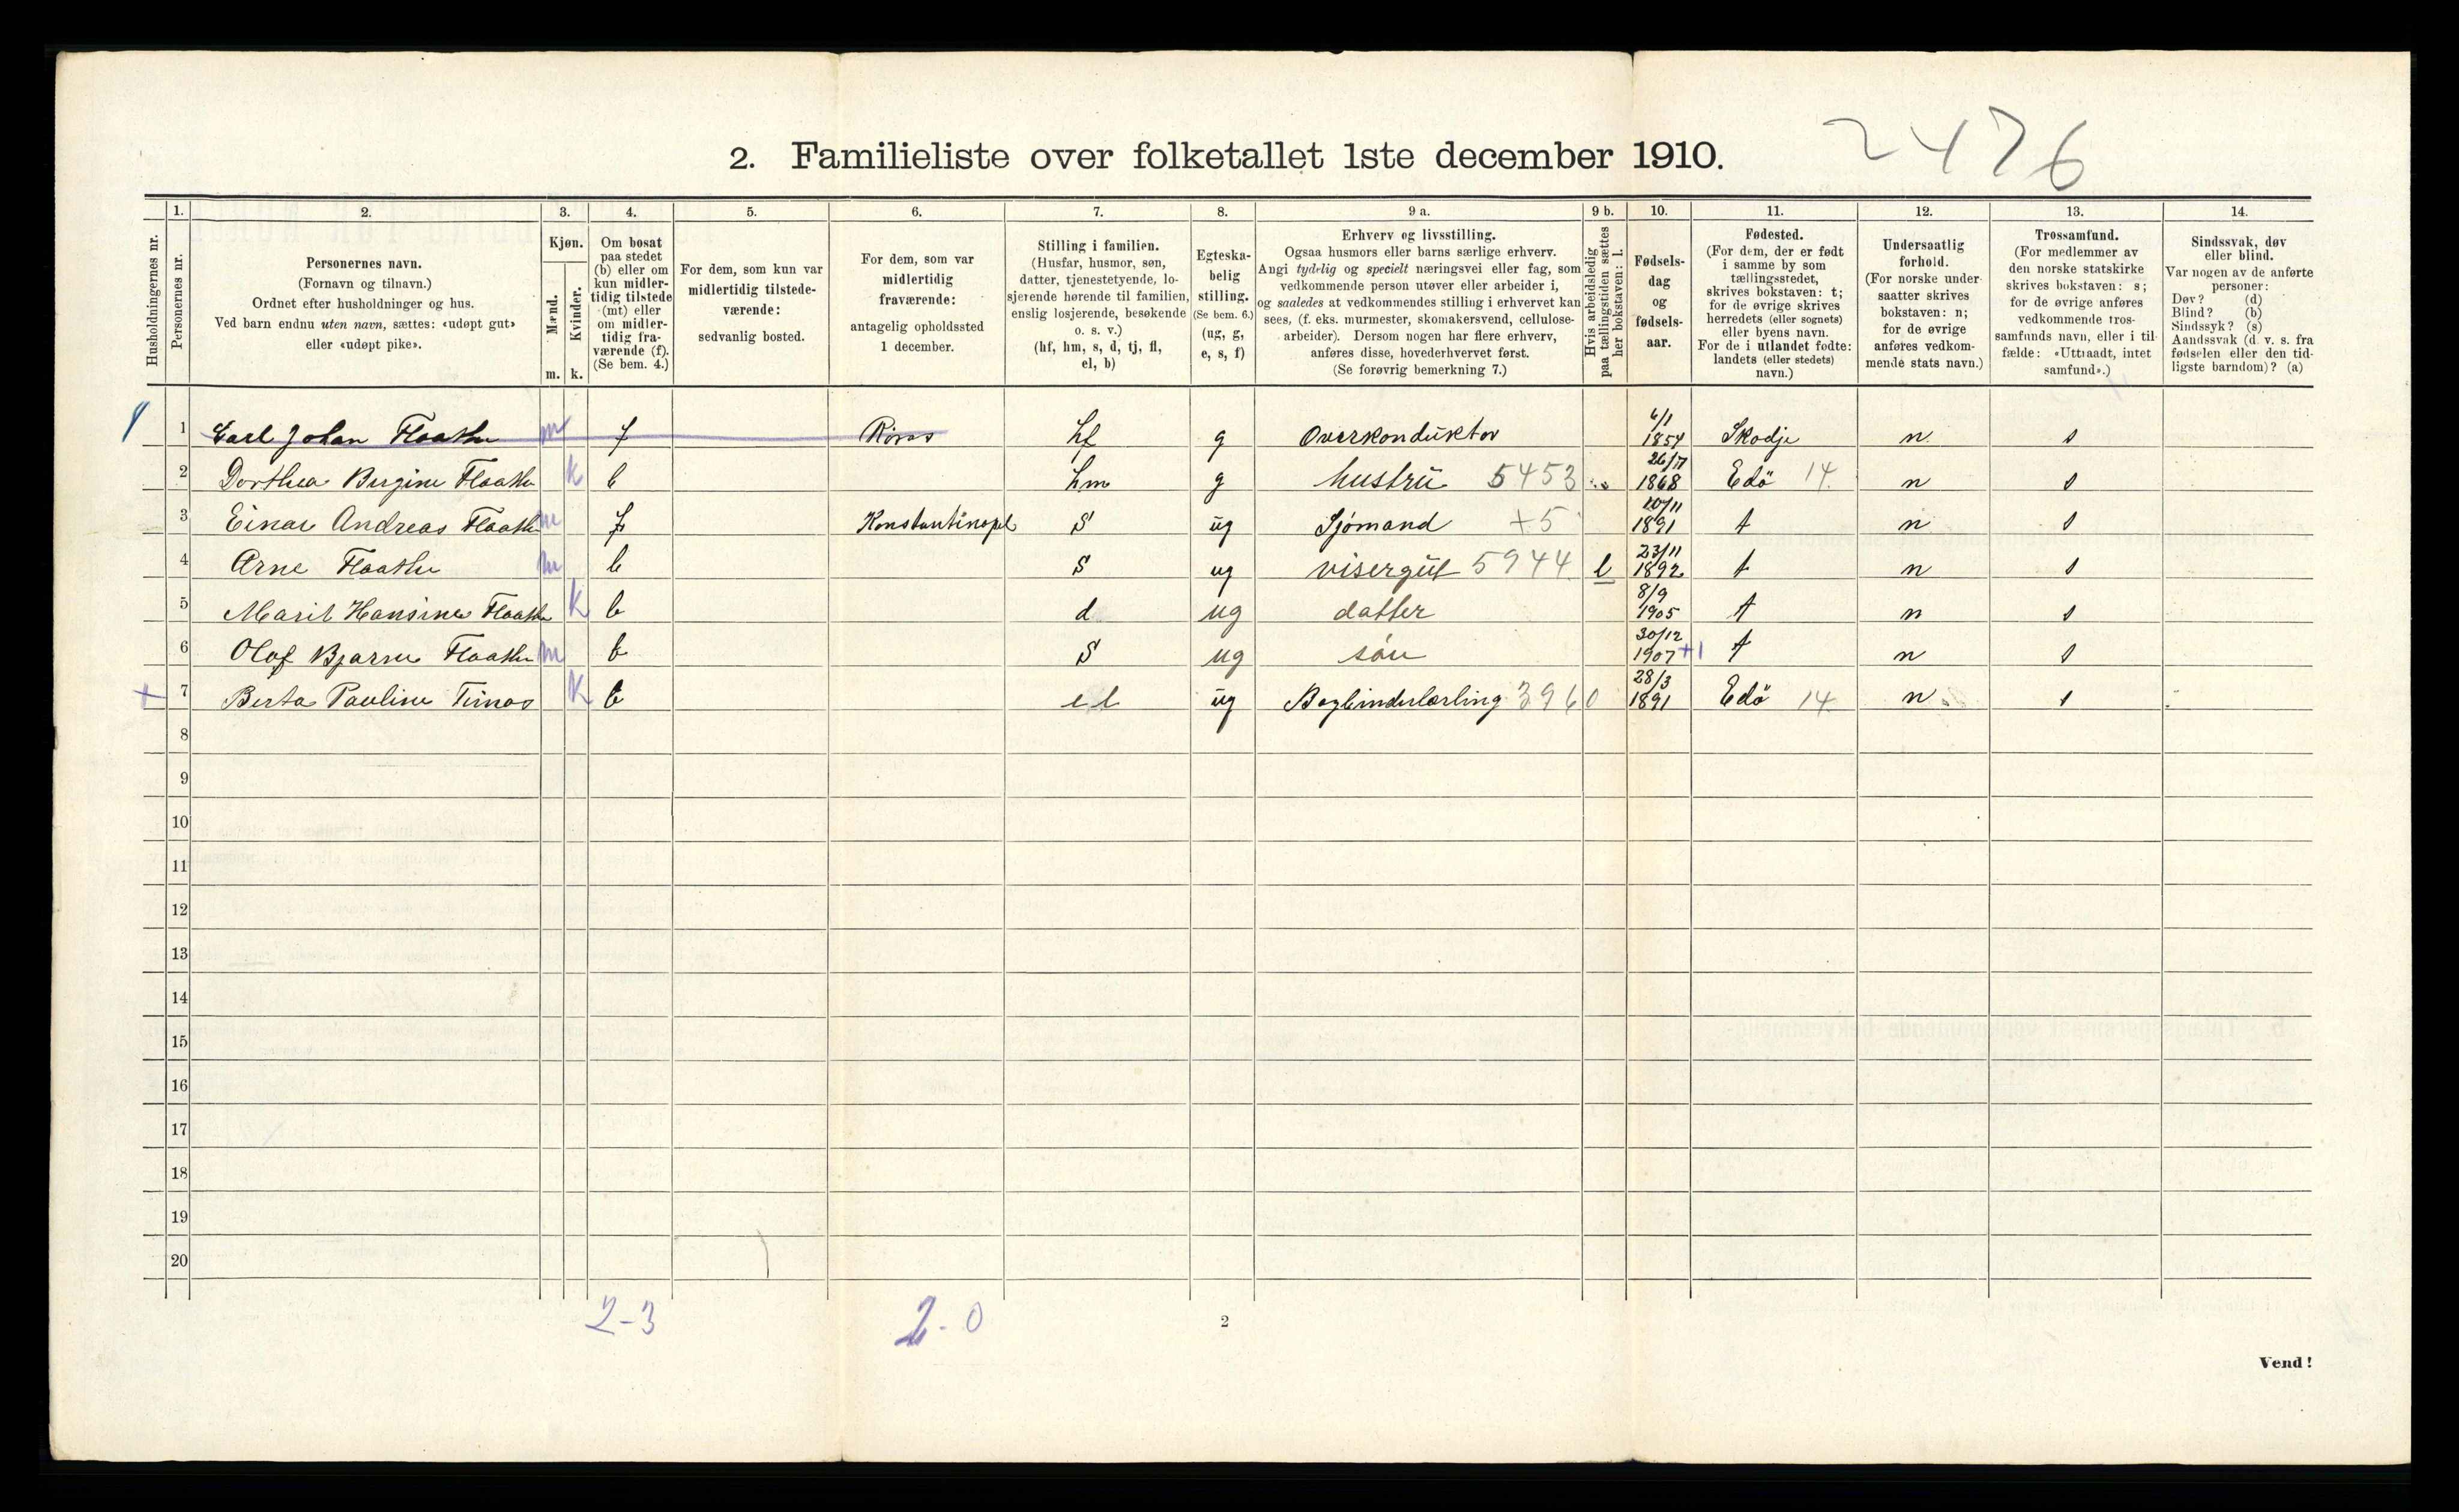 2476
2. Familieliste over folketallet 1ste december 1910.
1. 2. 3. 4. 5. 6. 7. 8. 9 a. 9 b. 10. 11. 12. 13. 14.
Husholdningernes nr.
Personernes nr.
Personernes navn.
(Fornavn og tilnavn.)
Ordnet efter husholdninger og hus.
Ved barn endnu uten navn, sættes: «udøpt gut»
eller «udøpt pike».
Kjøn.
Mænd.
m.
Kvinder.
k.
Om bosat
paa stedet
(b) eller om
kun midler-
tidig tilstede
(mt) eller
om midler-
tidig fra-
værende (f).
(Se bem. 4.)
For dem, som kun var
midlertidig tilstede-
værende:
sedvanlig bosted.
For dem, som var
midlertidig
fraværende:
antagelig opholdssted
1 december.
Stilling i familien.
(Husfar, husmor, søn,
datter, tjenestetyende, lo-
sjerende hørende til familien,
enslig losjerende, besøkende
o. s. v.)
(hf, hm, s, d, tj, fl,
el, b)
Egteska-
belig
stilling.
(Se bem. 6.)
(ug, g,
e, s, f)
Erhverv og livsstilling.
Ogsaa husmors eller barns særlige erhverv.
Angi tydelig og specielt næringsvei eller fag, som
vedkommende person utøver eller arbeider i,
og saaledes at vedkommendes stilling i erhvervet kan
sees, (f. eks. murmester, skomakersvend, cellulose-
arbeider). Dersom nogen har flere erhverv,
anføres disse, hovederhvervet først.
(Se forøvrig bemerkning 7.)
Hvis arbeidsledig
paa tællingstiden sættes
her bokstaven: l.
Fødsels-
dag
og
fødsels-
aar.
Fødested.
(For dem, der er født
i samme by som
tællingsstedet,
skrives bokstaven: t;
for de øvrige skrives
herredets (eller sognets)
eller byens navn.
For de i utlandet fødte:
landets (eller stedets)
navn.)
Undersaatlig
forhold.
(For norske under-
saatter skrives
bokstaven: n;
for de øvrige
anføres vedkom-
mende stats navn.)
Trossamfund.
(For medlemmer av
den norske statskirke
skrives bokstaven: s;
for de øvrige anføres
vedkommende tros-
samfunds navn, eller i til-
fælde: «Uttraadt, intet
samfund».)
Sindssvak, døv
eller blind.
Var nogen av de anførte
personer:
Døv? (d)
Blind? (b)
Sindssyk? (s)
Aandssvak (d. v. s. fra
fødselen eller den tid-
ligste barndom)? (a)
1 Carl Johan Flaathe m f Röros hf g Overkonduktor 6/1 1854 Skodje n s
2 Dorthea Bergine Flaathe k b hm g hustru 5453 1868 Edö 14 n s
3 Einar Andreas Flaathe m f Konstantinopel S ug Sjömand +5 20/11 1891 t n s
4 Arne Flaathe m b S ug visergut 5944 l 23/11 1892 t n s
5 Marit Hansine Flaathe k b d ug datter 8/9 1905 t n s
6 Olaf Bjarne Flaathe m b S ug sön 30/12 1907 +1 t n s
+ 7 Berta Pauline k b el ug Bogbinderlærling 3960 28/3 1891 Edö 14 n s
8
9
10
11
12
13
14
15
16
17
18
19
20
2-3 2-0
2
Vend!